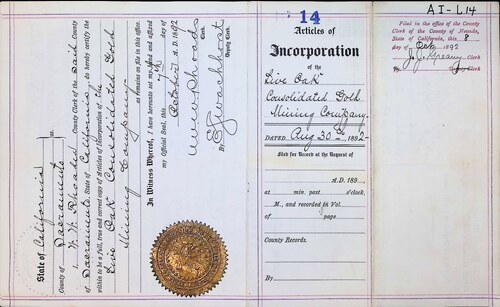 State of California
County of Sacramento } ss.
I, W. W. Rhoads County Clerk of the said County
of Sacramento, State of California, do hereby certify the
within to be a full, true and correct copy of Articles of Incorporation of the
Live Oak Consolidated Gold
Mining Company
as remains on file in this office.
In Witness Whereof, I have hereunto set my hand and affixed
my Official Seal, this 7th day of
October A. D. 1892
W W Rhoads
Clerk
By
Deputy Clerk.
14
Articles of
Incorporation
of the
Live Oak
Consolidated Gold
Mining Company.
DATED Aug 30th 1892
Filed for Record at the Request of
A. D. 189
at min. past o'clock,
M., and recorded in Vol.
of page
County Records.
By
AI-L14
Filed in the office of the County
Clerk of the County of Nevada,
State of California, this 8
day of Oct 1892
Clerk
By Clerk